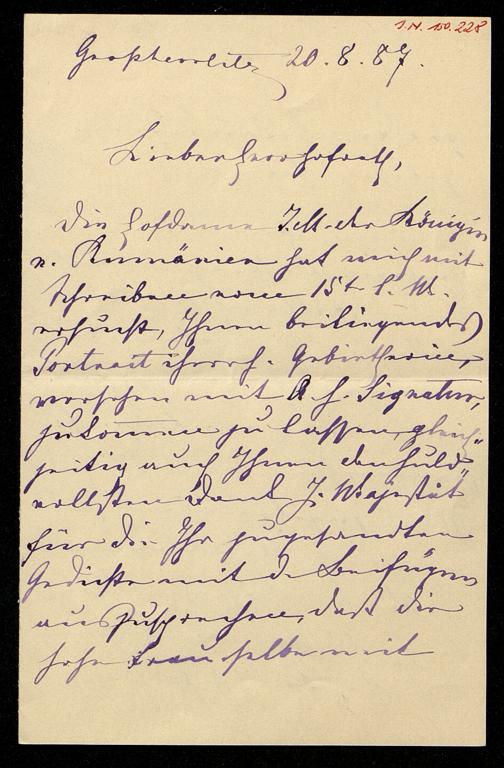 I.N. 150.228
Großherrlitz, 20.8.87.
Lieber Herr Hofrath,
Die Hofdame I. M. der Königin
v. Rumänien hat mich mit
Schreiben vom 15t l. M.
ersucht, Ihnen beiliegendes
Portrait ihrer h. Gebietherin,
versehen mit A. h. Signatur,
zukommen zu lassen, gleich„
zeitig auch Ihnen den huld„
vollsten Dank I. Majestät
für die Ihr zugesandten
Gedichte mit d. Beifügen
auszusprechen, daß die
hohe Frau selbe mit